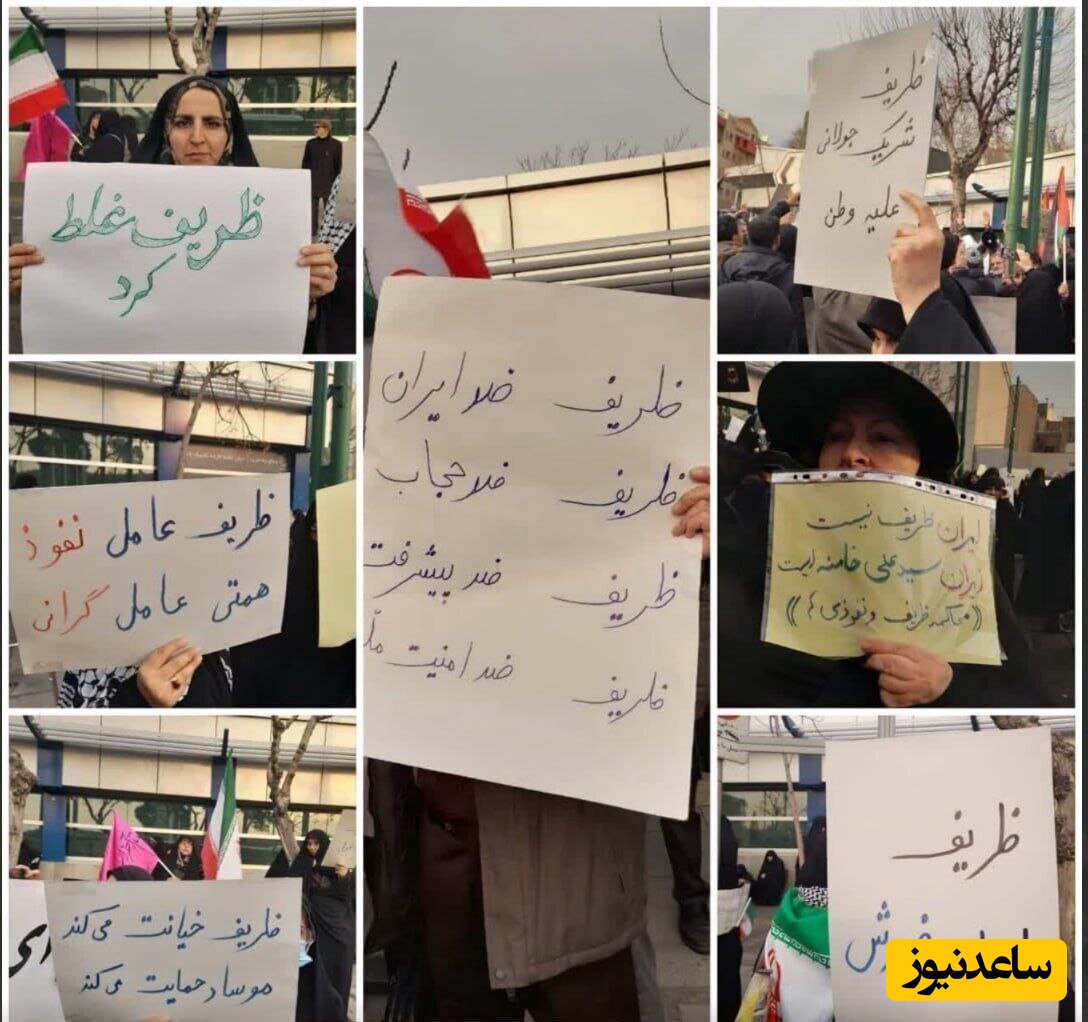 ظریف غلط
کرد
ظریف
شریک جولانی
علیه وطن
ظریف ضد ایران
ظریف ضد حجاب
ظریف ضد پیشرفت
ظریف ضد امنیت
ظریف عامل نفوذ
همتی عامل گرانی
ایران ظریف نیست
ایران سیدعلی خامنه ایست
((محاکمه ظریف و نفوذی ها))
ظریف خیانت می کند
موساد حمایت می کند
ظریف
ساعدنیوز